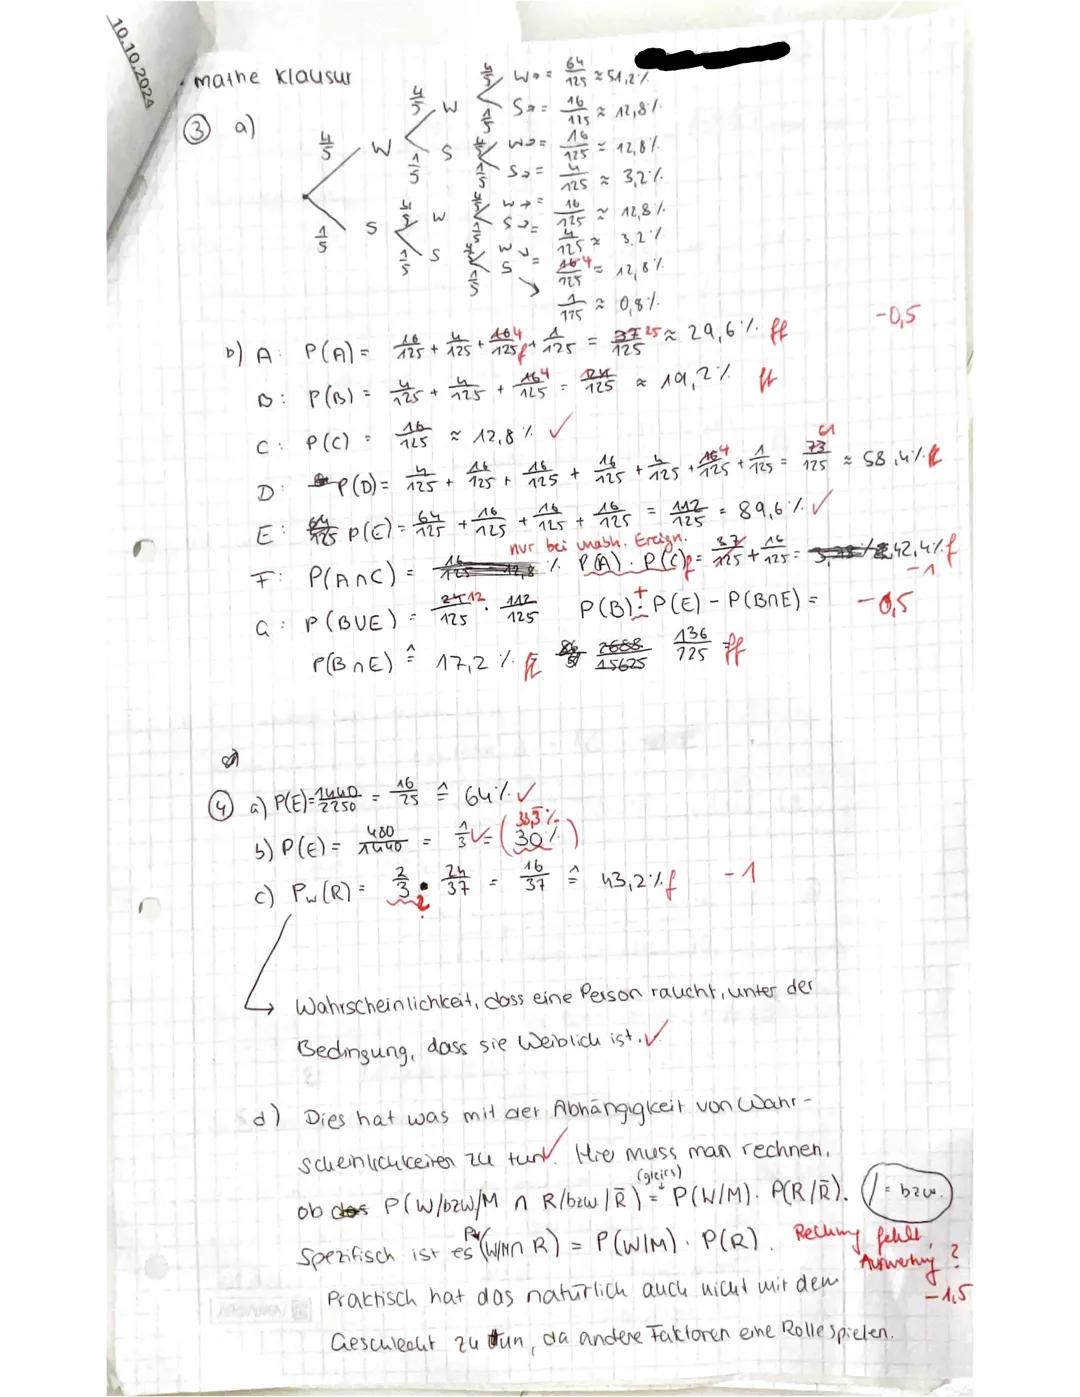 10.10.2024
mathe Klausur
③ a)
4/5 W 4/5 W 4/5 W → = 64/125 ≈ 51,2%
1/5 S → = 16/125 ≈ 12,8%
1/5 S 4/5 W → = 16/125 ≈ 12,8%
1/5 S → = 4/125 ≈ 3,2%
1/5 S 4/5 W 4/5 W → = 16/125 ≈ 12,8%
1/5 S → = 4/125 ≈ 3,2%
1/5 S 4/5 W → = 4/125 ≈ 12,8%
1/5 S → 1/125 ≈ 0,8%
-0,5
b) A: P(A) = 16/125 + 4/125 + 16/125 4 f + 1/125 = 37/125 25 ≈ 29,6% ff
B: P(B) = 4/125 + 4/125 + 16/125 4 = 24/125 ≈ 19,2% ff
C: P(C) = 16/125 ≈ 12,8% ✓
D: P(D) = 4/125 + 16/125 + 16/125 + 16/125 + 4/125 + 16/125 4 + 1/125 = 73/125 61 ≈ 58,4% ff
E: P(E) = 64/125 + 16/125 + 16/125 + 16/125 = 112/125 = 89,6% ✓
nur bei unabh. Ereign.
F: P(A∩C) = % P(A) · P(C) f = 37/125 + 16/125 = 42,4% f
-1
G: P(B∪E) = 24/125 12 · 112/125 P(B) + P(E) - P(B∩E) = -0,5
P(B∩E) ≙ 17,2% ff 136/125 ff
④ a) P(E) = 1440/2250 = 16/25 ≙ 64% ✓
b) P(E) = 480/1440 = 1/3 ✓ = (30%) 33,3%
c) Pw(R) = 2/3 · 24/37 = 16/37 ≙ 43,2% f -1
?
↳ Wahrscheinlichkeit, dass eine Person raucht, unter der
Bedingung, dass sie Weiblich ist. ✓
d) Dies hat was mit der Abhängigkeit von Wahr-
scheinlichkeiten zu tun ✓. Hier muss man rechnen,
(gleich)
ob P(W/bzw/M ∩ R/bzw/R̄) = P(W/M) · P(R/R̄). (/ = bzw.)
Spezifisch ist es P(W/M∩R) = P(W/M) · P(R). Rechnung fehlt,
Auswertung?
Praktisch hat das natürlich auch nicht mit dem -1,5
Geschlecht zu tun, da andere Faktoren eine Rolle spielen.